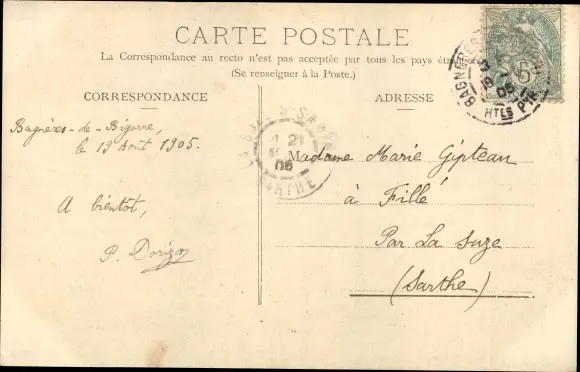 CARTE POSTALE
La Correspondance au recto n'est pas acceptée par tous les pays
(Se renseigner à la Poste.)
CORRESPONDANCE
ADRESSE
Bagnères-de-Bigorre,
le 19 Août 1905.
A bientôt,
P. Dorizon
Madame Marie Gipteau
à Fillé
Par La Suze
(Sarthe)
5
HTES PYR
21
05
SARTHE